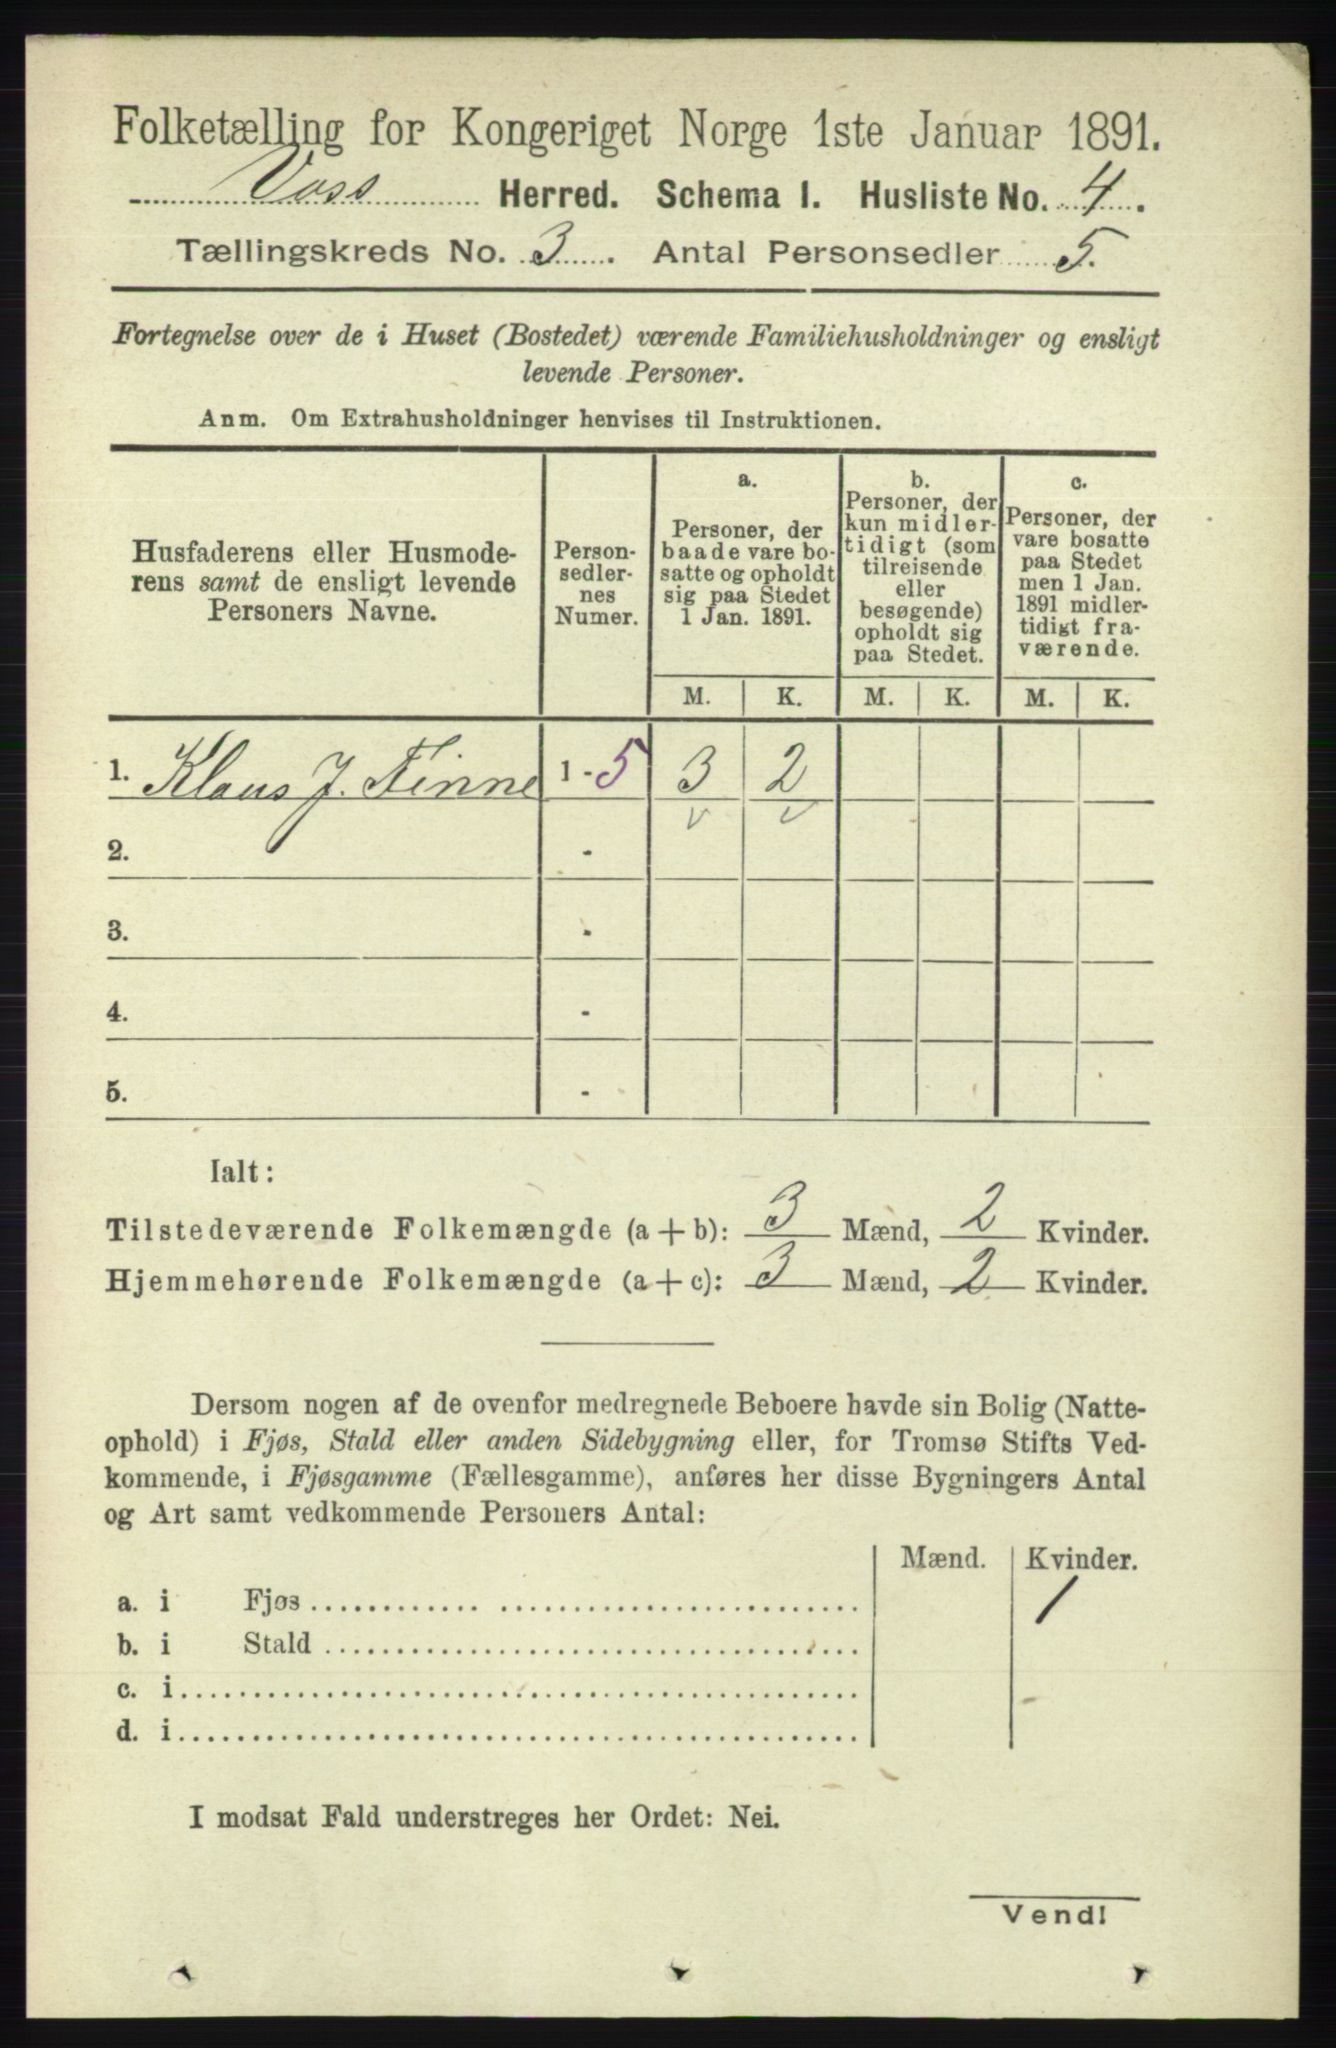 Folketælling for Kongeriget Norge 1ste Januar 1891.
Voss Herred. Schema I. Husliste No. 4.
Tællingskreds No. 3. Antal Personsedler 5.
Fortegnelse over de i Huset (Bostedet) værende Familiehusholdninger og ensligt
levende Personer.
Anm. Om Extrahusholdninger henvises til Instruktionen.
Husfaderens eller Husmode-
rens samt de ensligt levende
Personers Navne.
Person-
sedler-
nes
Numer.
a.
Personer, der
baade vare bo-
satte og opholdt
sig paa Stedet
1 Jan. 1891.
b.
Personer, der
kun midler-
tidigt (som
tilreisende
eller
besøgende)
opholdt sig
paa Stedet.
c.
Personer, der
vare bosatte
paa Stedet
men 1 Jan.
1891 midler-
tidigt fra-
værende.
M. K. M. K. M. K.
1. Klaus J. Finne 1 - 5 3 2
2. -
3. -
4. -
5. -
Ialt:
Tilstedeværende Folkemængde (a + b): 3 Mænd, 2 Kvinder.
Hjemmehørende Folkemængde (a + c): 3 Mænd, 2 Kvinder.
Dersom nogen af de ovenfor medregnede Beboere havde sin Bolig (Natte-
ophold) i Fjøs, Stald eller anden Sidebygning eller, for Tromsø Stifts Ved-
kommende, i Fjøsgamme (Fællesgamme), anføres her disse Bygningers Antal
og Art samt vedkommende Personers Antal:
Mænd. Kvinder.
a. i Fjøs 1
b. i Stald
c. i
d. i
I modsat Fald understreges her Ordet: Nei.
Vend!